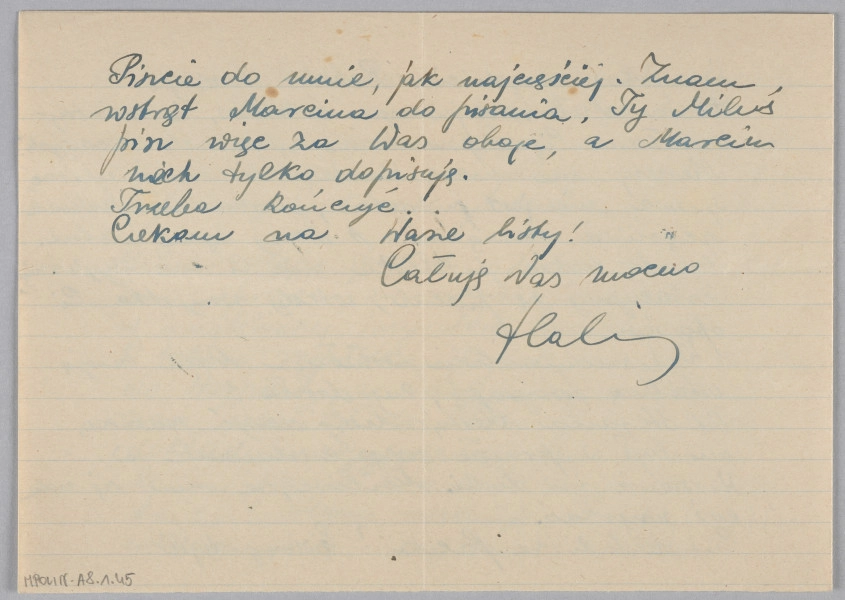 Piszcie do mnie, jak najczęściej. Znam,
wstręt Marcina do pisania, Ty Miluś
pisz więc za Was oboje, a Marcin
niech tylko dopisuję.
Trzeba kończyć.
Czekam na Wasze listy!
Całuję Was mocno
Hali
MPOLIN-A8.1.45